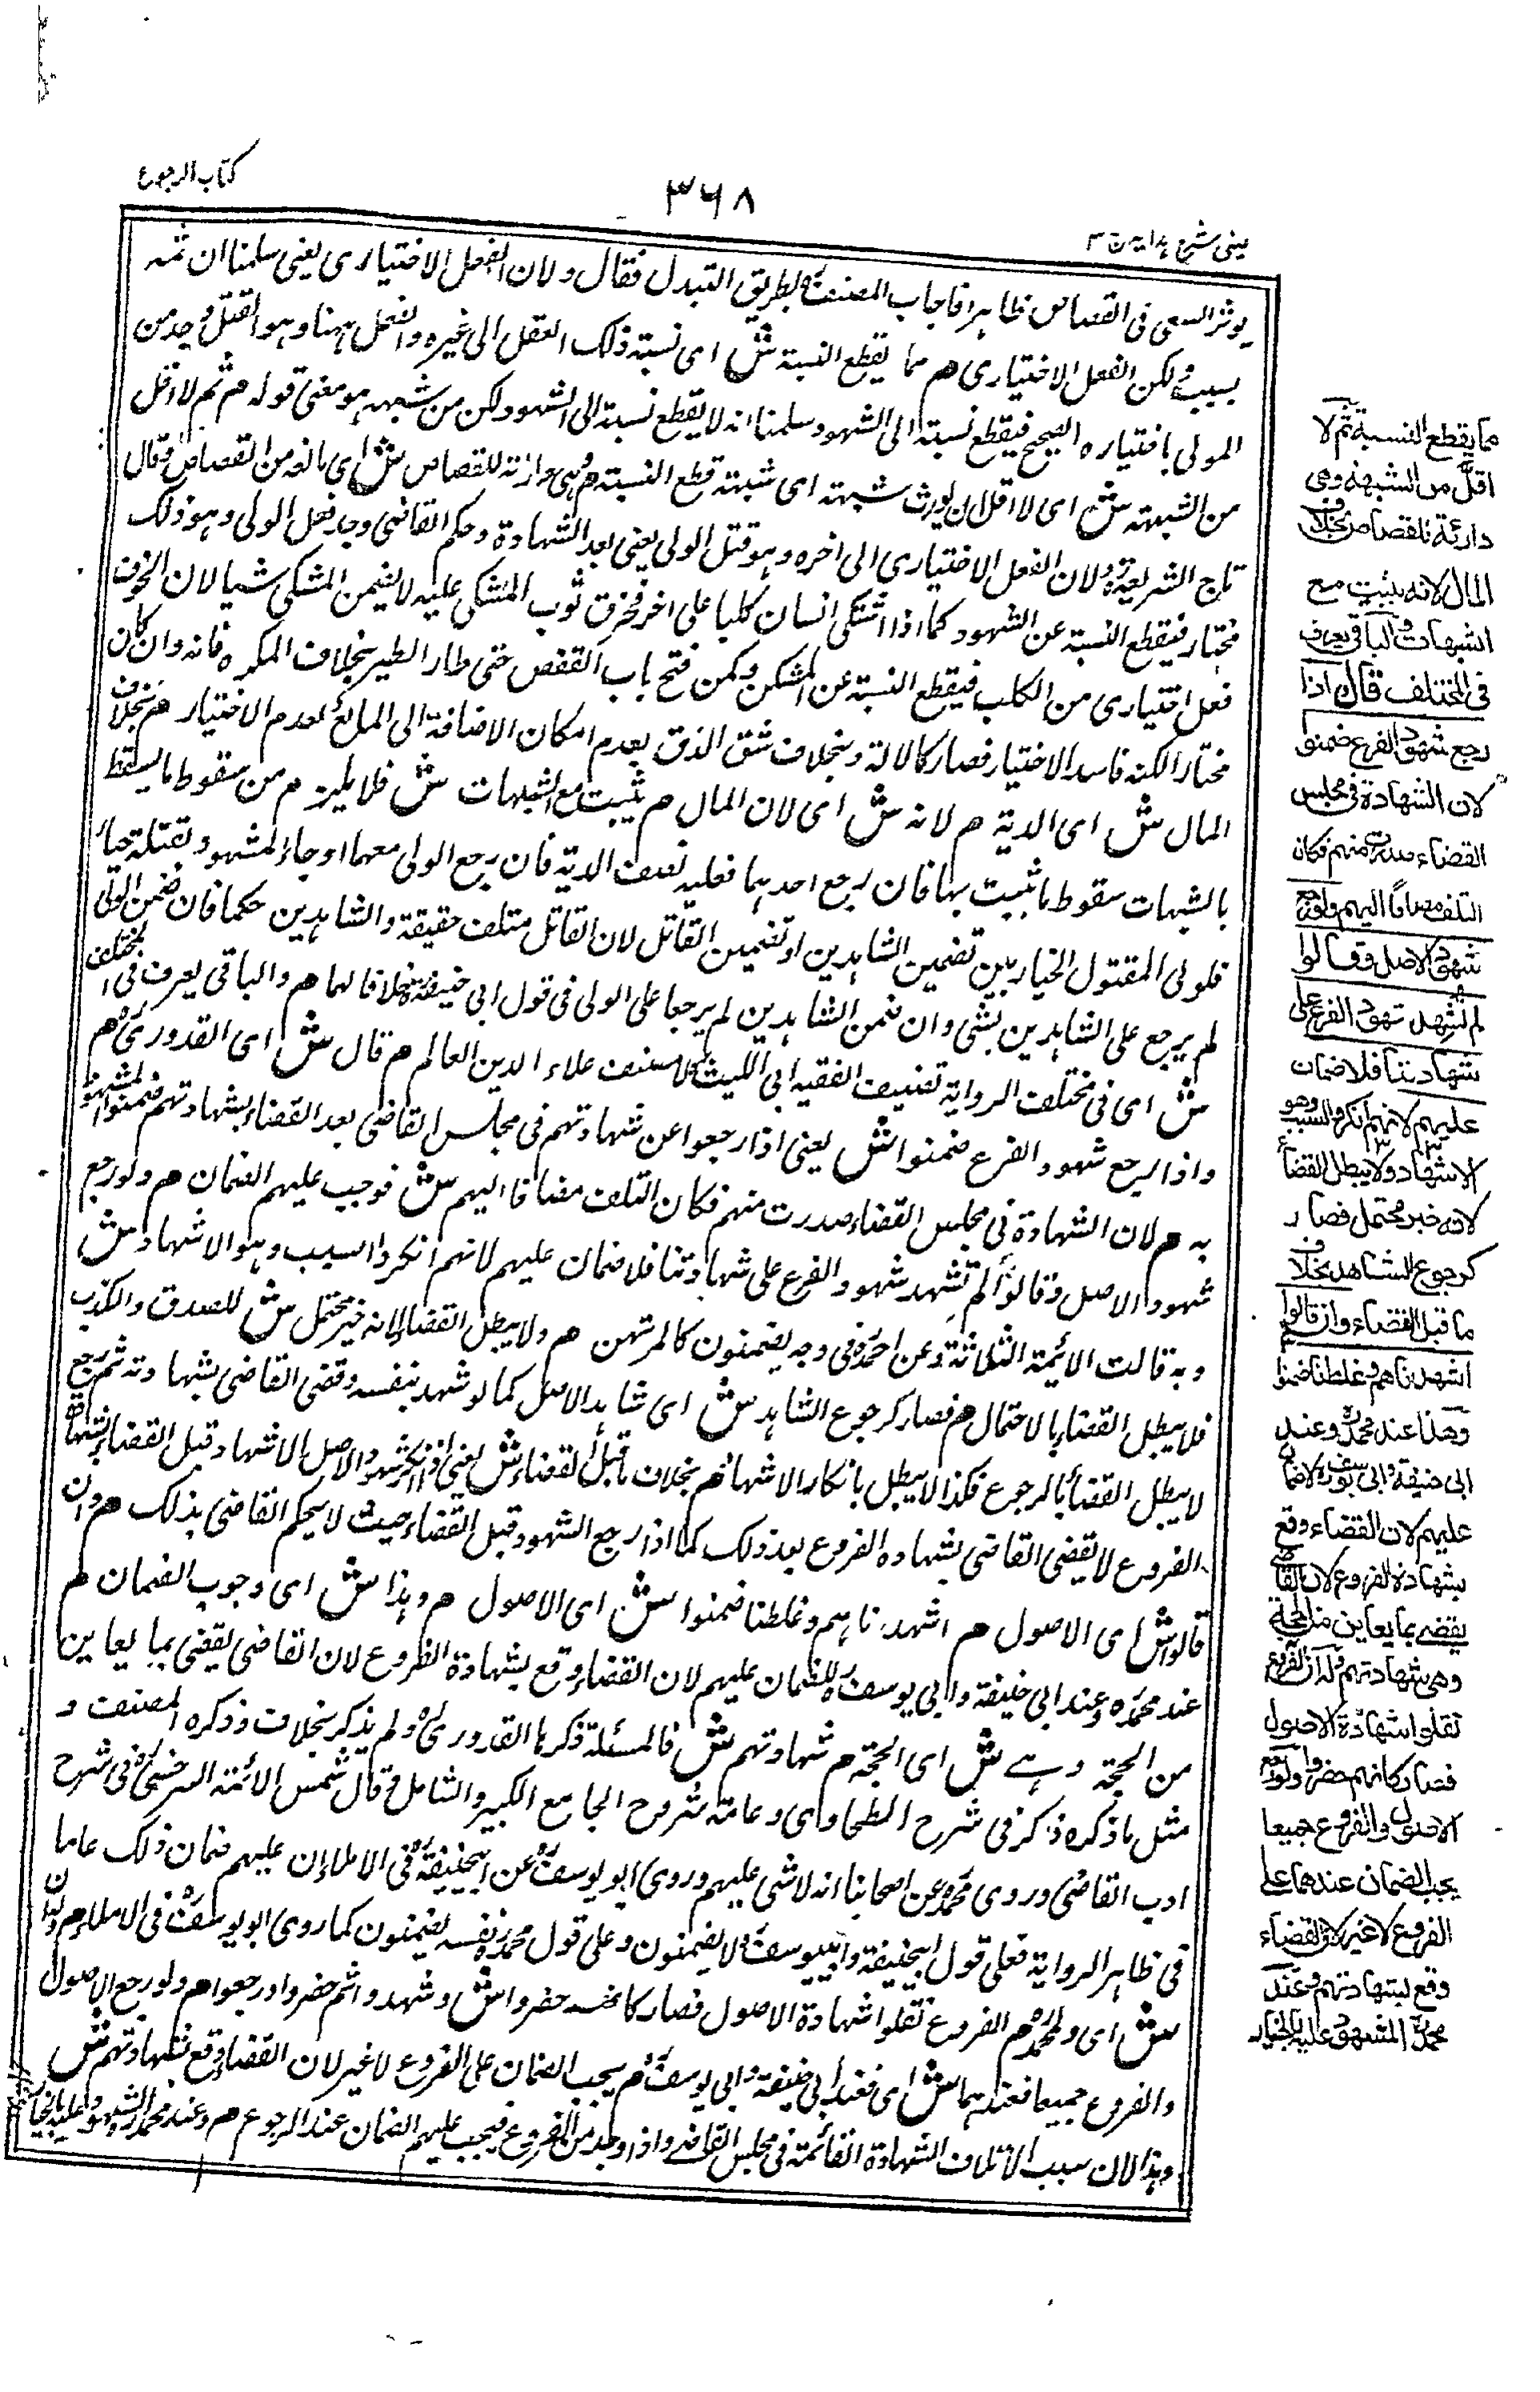 كتاب الرجوع
٣٦٨
عينى شرح هدايه ج ٣
يوثر السعى فى القصاص ظاهرا فاجاب المصنفؒ بطريق التبدل فقال ولان الفعل الاختيارى يعنى سلمنا ان ثمه
بسبب ولكن الفعل الاختيارى هم مما يقطع النسبة ش اى نسبة ذلك الفعل الى غيره والفعل ههنا وهو القتل وجد من
المولى باختياره الصحيح فيقطع نسبته الى الشهود وسلمنا انه لا يقطع نسبته الى الشهود لكن من شبهه هو معنى قوله هم ثم لا اقل
من الشبهة ش اى لا اقل ان يورث شبهة اى شبهة قطع النسبة م وهى دارئة للقصاص ش اى مانعه من القصاص وقال
تاج الشريعةؒ ولان الفعل الاختيارى الى اخره وهو قتل الولى يعنى بعد الشهادة وحكم القاضى وجد فعل الولى وهو ذلك
مختار فيقطع النسبة عن الشهود كما اذا اشكى انسان كلبا على اخر فخرق ثوب المشكى عليه لا يضمن المشكى شيا لان الخرق
فعل اختيارى من الكلب فيقطع النسبة عن المشكى وكمن فتح باب القفص حتى طار الطير بخلاف المكره فانه وان كان
مختارا لكنه فاسد الاختيار فصار كالالة وبخلاف شق الزق بعدم امكان الاضافة الى المائع لعدم الاختيار هم بخلاف
المال ش اى الدية م لانه ش اى لان المال م يثبت مع الشبهات ش فلا يلزم من سقوط ما يسقط
بالشبهات سقوط ما يثبت بها فان رجع احدهما فعليه نصف الدية فان رجع الولى معهما او جاء المشهود بقتله حيا
فلولى المقتول الخيار بين تضمين الشاهدين او تضمين القاتل لان القاتل متلف حقيقة والشاهدين حكما فان ضمن الولى
لم يرجع على الشاهدين بشى وان ضمن الشاهدين لم يرجعا على الولى فى قول ابى حنيفةؒ خلافا لهما هم والباقى يعرف فى المختلف
ش اى فى مختلف الرواية تصنيف الفقيه ابى الليثؒ لا مصنف علاء الدين العالم هم قال ش اى القدورىؒ هم
واذا رجع شهود الفرع ضمنوا ش يعنى اذا رجعوا عن شهادتهم فى مجلس القاضى بعد القضاء بشهادتهم ضمنوا المشهود
به هم لان الشهادة فى مجلس القضاء صدرت منهم فكان التلف مضافا اليهم ش فوجب عليهم الضمان هم ولو رجع
شهود الاصل وقالوا لم تشهد شهود الفرع على شهادتنا فلا ضمان عليهم لانهم انكروا السبب وهو الاشهاد ش
وبه قالت الائمة الثلاثة وعن احمدؒ فى وجه يضمنون كالمرتهن هم ولا يبطل القضاء لانه خبر محتمل ش للصدق والكذب
فلا يبطل القضاء بالاحتمال هم فصار كرجوع الشاهد ش اى شاهد الاصل كما لو شهد بنفسه وقضى القاضى بشهادته ثم رجع
لا يبطل القضاء بالرجوع فكذا لا يبطل بانكار الاشهاد هم بخلاف ما قبل القضاء ش يعنى اذا انكر شهود الاصل الاشهاد قبل القضاء بشهادة
الفروع لا يقضى القاضى بشهادة الفروع بعد ذلك كما اذا رجع الشهود قبل القضاء حيث لا يحكم القاضى بذلك هم وان
قالوا ش اى الاصول هم اشهدناهم وغلطنا ضمنوا ش اى الاصول هم وهذا ش اى وجوب الضمان لم
عند محمدؒ وعند ابى حنيفة وابى يوسفؒ لا ضمان عليهم لان القضاء وقع بشهادة الفروع لان القاضى يقضى بما يعاين
من الحجة وهى ش اى الحجة م شهادتهم ش فالمسئلة ذكرها القدورىؒ ولم يذكر بخلاف وذكره المصنف و
مثل ما ذكره ذكر فى شرح الطحاوى وعامة شروح الجامع الكبير والشامل وقال شمس الائمة السرخسىؒ فى شرح
ادب القاضى وروى محمدؒ عن اصحابنا انه لا شى عليهم وروى ابو يوسفؒ عن ابيحنيفةؒ فى الاملاء ان عليهم ضمان ذلك عاما
فى ظاهر الرواية فعلى قول ابيحنيفة وابييوسفؒ لا يضمنون وعلى قول محمدؒ نفسه يضمنون كما روى ابو يوسفؒ فى الاملاء هم وله ان
ش اى ولمحمدؒ هم الفروع نقلوا شهادة الاصول فصار كانهم حضروا ش وشهدوا ثم حضروا ورجعوا هم ولو رجع الاصول
والفروع جميعا فعندهما ش اى فعند ابى حنيفة وابى يوسفؒ هم يجب الضمان على الفروع لا غير لان القضاء وقع بشهادتهم ش
وهذا لان سبب الاتلاف الشهادة القائمة فى مجلس القاضى واذا وجد من الفروع فيجب عليهم الضمان عند الرجوع هم وعند محمدؒ المشهود عليه بالخيار
مما يقطع النسبة ثم لا
اقل من الشبهة وهى
دارئة للقصاص بخلاف
المال لانه يثبت مع
الشبهات والباقى يعرف
فى المختلف قال اذا
رجع شهود الفرع ضمنوا
لان الشهادة فى مجلس
القضاء صدرت منهم فكان
التلف مضافا اليهم ولو رجع
شهود الاصل وقالوا
لم نشهد شهود الفرع على
شهادتنا فلا ضمان
عليهم لانهم انكروا السبب وهو
الاشهاد ولا يبطل القضاء
لانه خبر محتمل فصار
كرجوع الشاهد بخلاف
ما قبل القضاء وان قالوا
اشهدناهم وغلطنا ضمنوا
وهذا عند محمدؒ وعند
ابى حنيفة وابى يوسفؒ لا ضمان
عليهم لان القضاء وقع
بشهادة الفروع لان القاضى
يقضى بما يعاين من الحجة
وهى شهادتهم وله ان الفروع
نقلوا شهادة الاصول
فصار كانهم حضروا ولو رجع
الاصول والفروع جميعا
يجب الضمان عندهما على
الفروع لا غير لان القضاء
وقع بشهادتهم وعند
محمدؒ المشهود عليه بالخيار